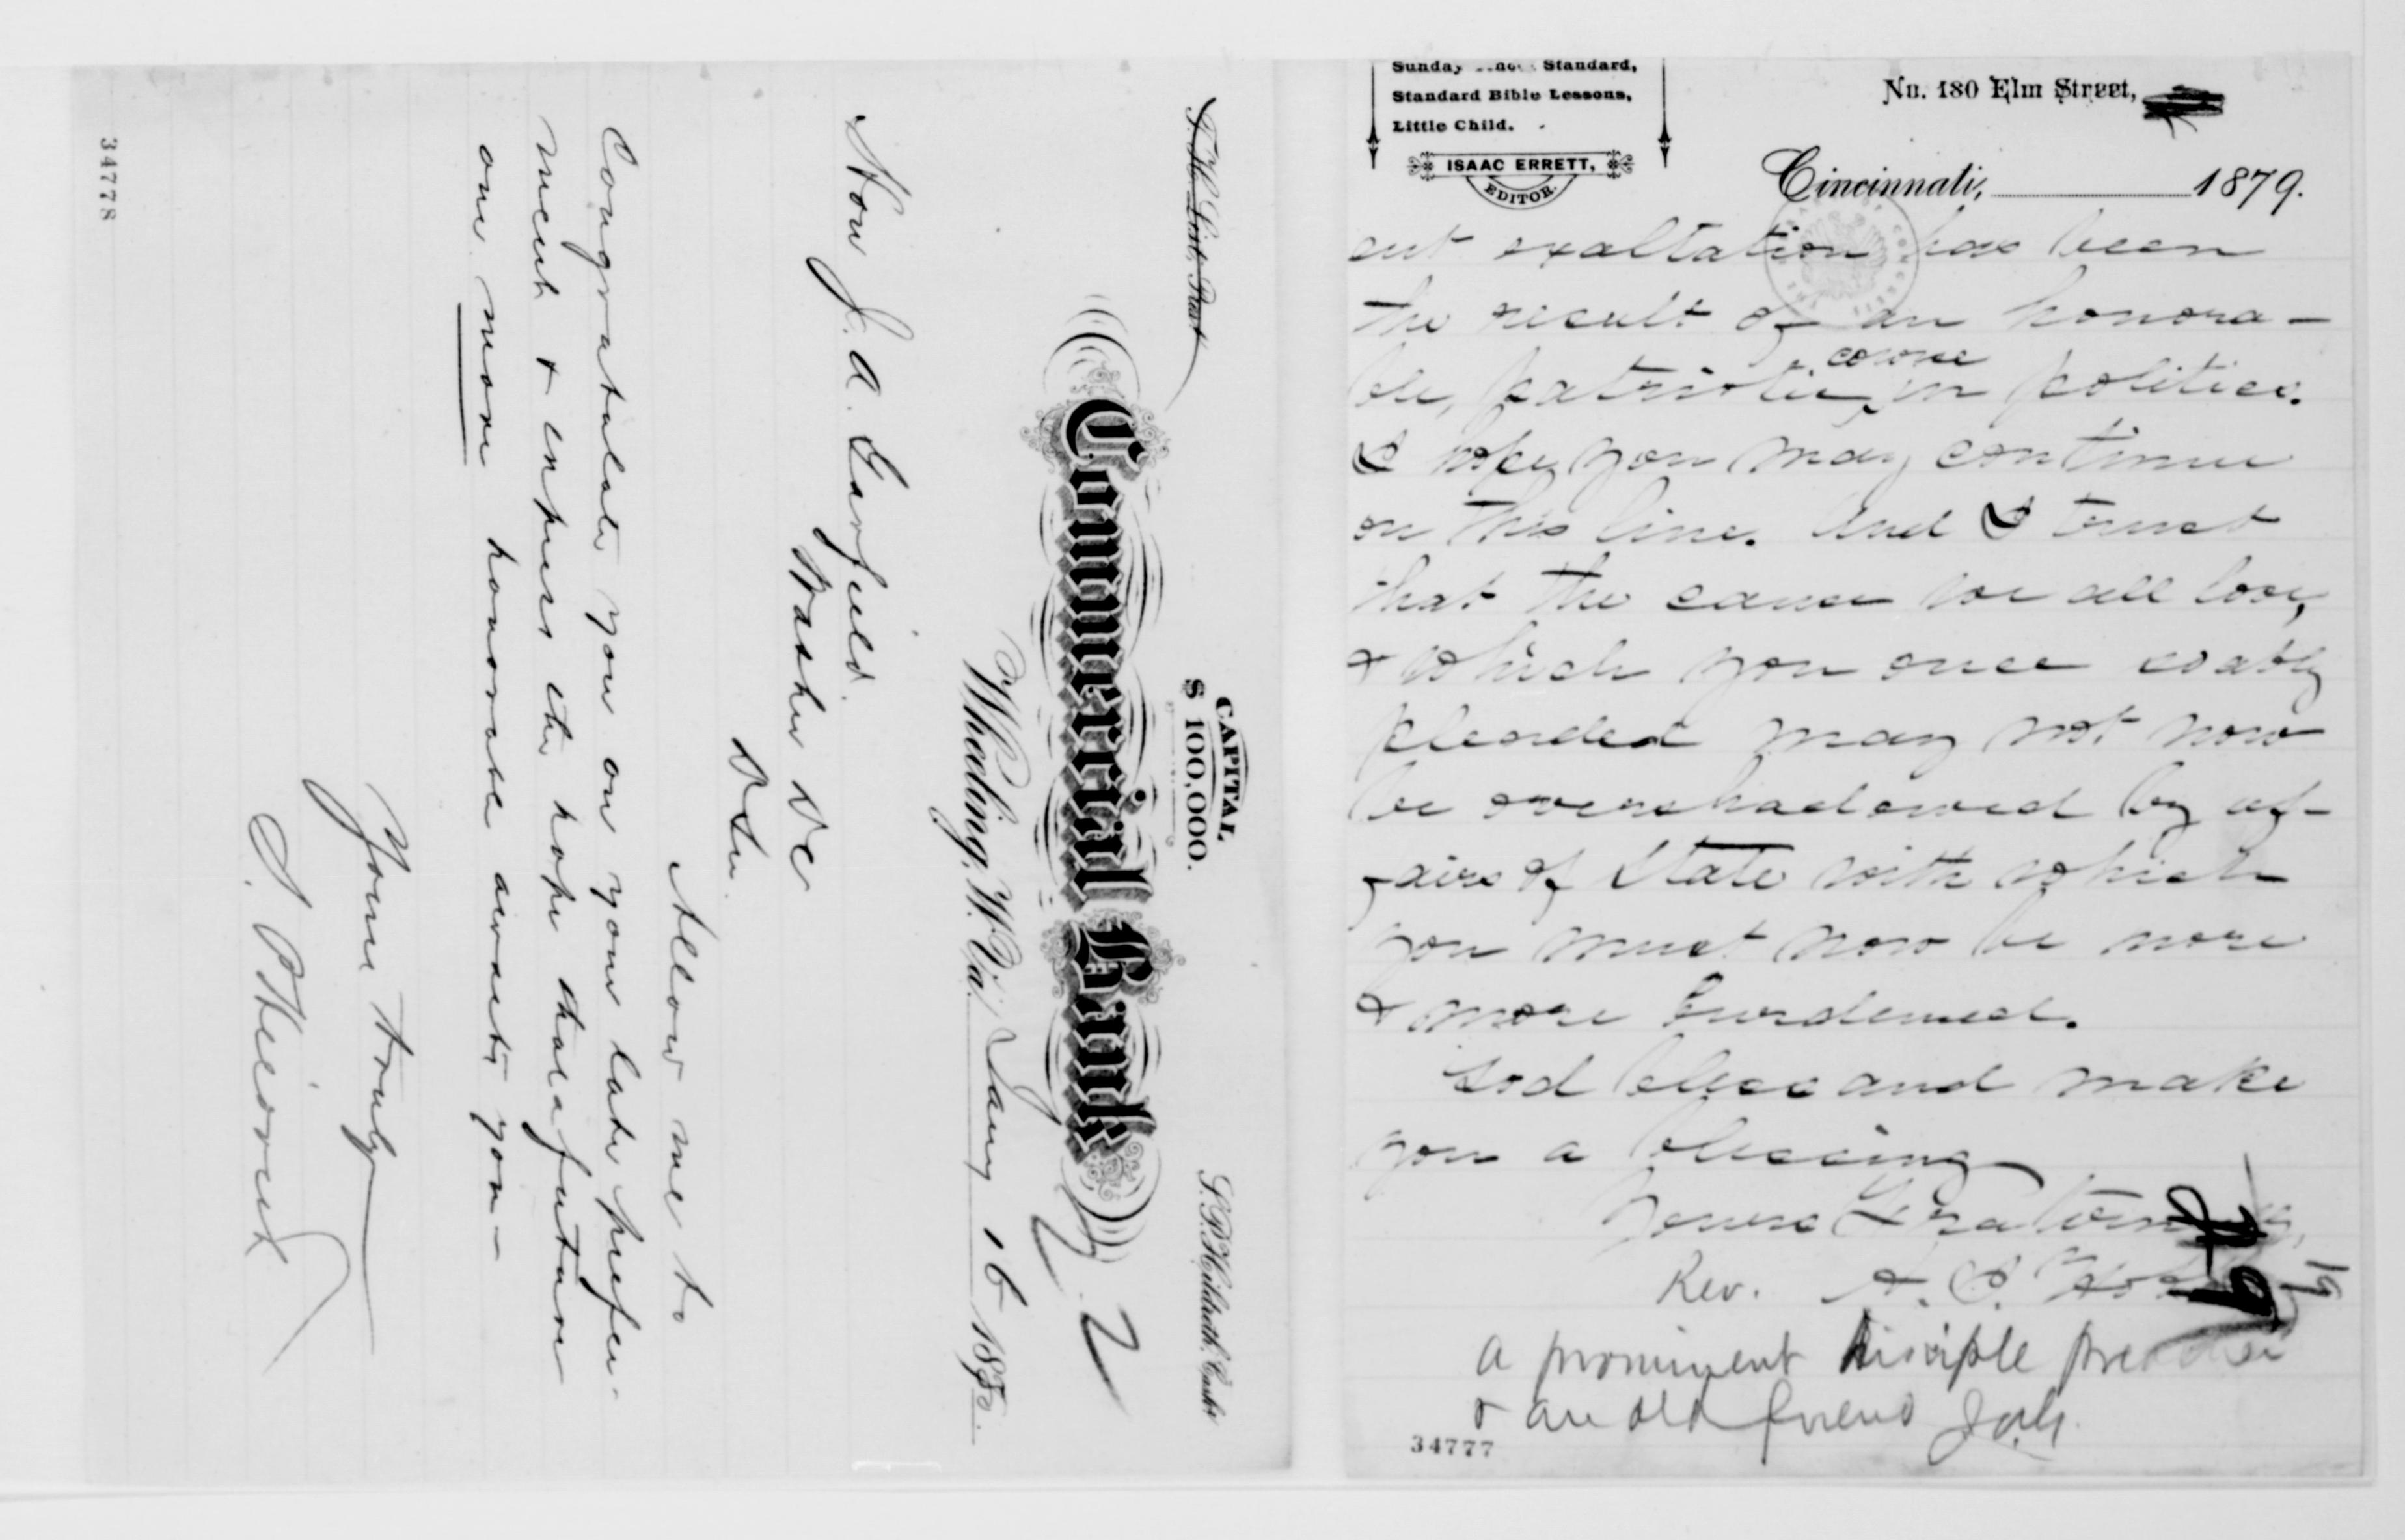 T. H. List, Prest
CAPITAL
$ 100,000.
S. P. Hildreth, Cash.
Commercial Bank
Wheeling, W. Va. Jany 16 1880.
Hon J. A. Garfield.
Washn DC
D Sir.
Allow me to
Congratulate you on your late prefer-
ment & express the hope that a future
one more honorable awaits you -
Yours truly
34778
Sunday School Standard,
Standard Bible Lessons,
Little Child.
ISAAC ERRETT,
EDITOR.
No. 180 Elm Street,
Cincinnati, 1879.
ent exaltation has been
the result of an honora-
ble, patriotic course in politics.
I hope you may continue
on this line. And I trust
that the cause we all love,
& which you once so ably
pleaded may not now
be overshadowed by af-
fairs of State with which
you must now be more
& more burdened.
God bless and make
you a blessing
Yours Fraternally,
Rev. A. I.
a prominent Disciple preacher
& an old friend JAG.
34777